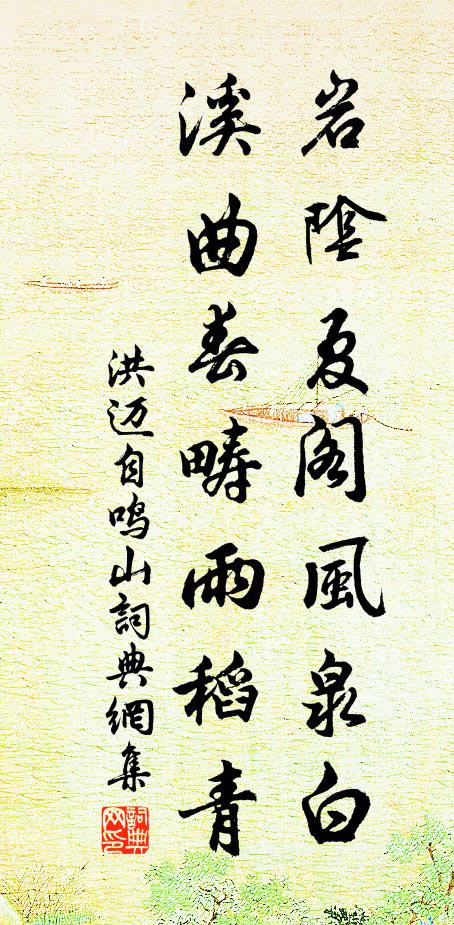 岩陰夏閣風泉白
溪曲春疇雨稻青
洪迈自鳴山詞典網集
詞典网印